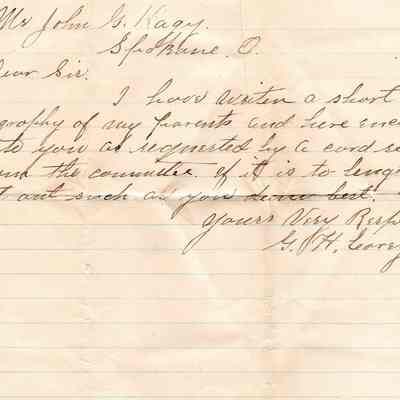 Mr John G. Kagy.
Spokane. O.
Dear Sir.
I have writen a short
ography of my parents and here enc
to you as requested by a card re
om the committee. if it is to leng
t out such as you deem best.
Yours Very Resp
G. H.